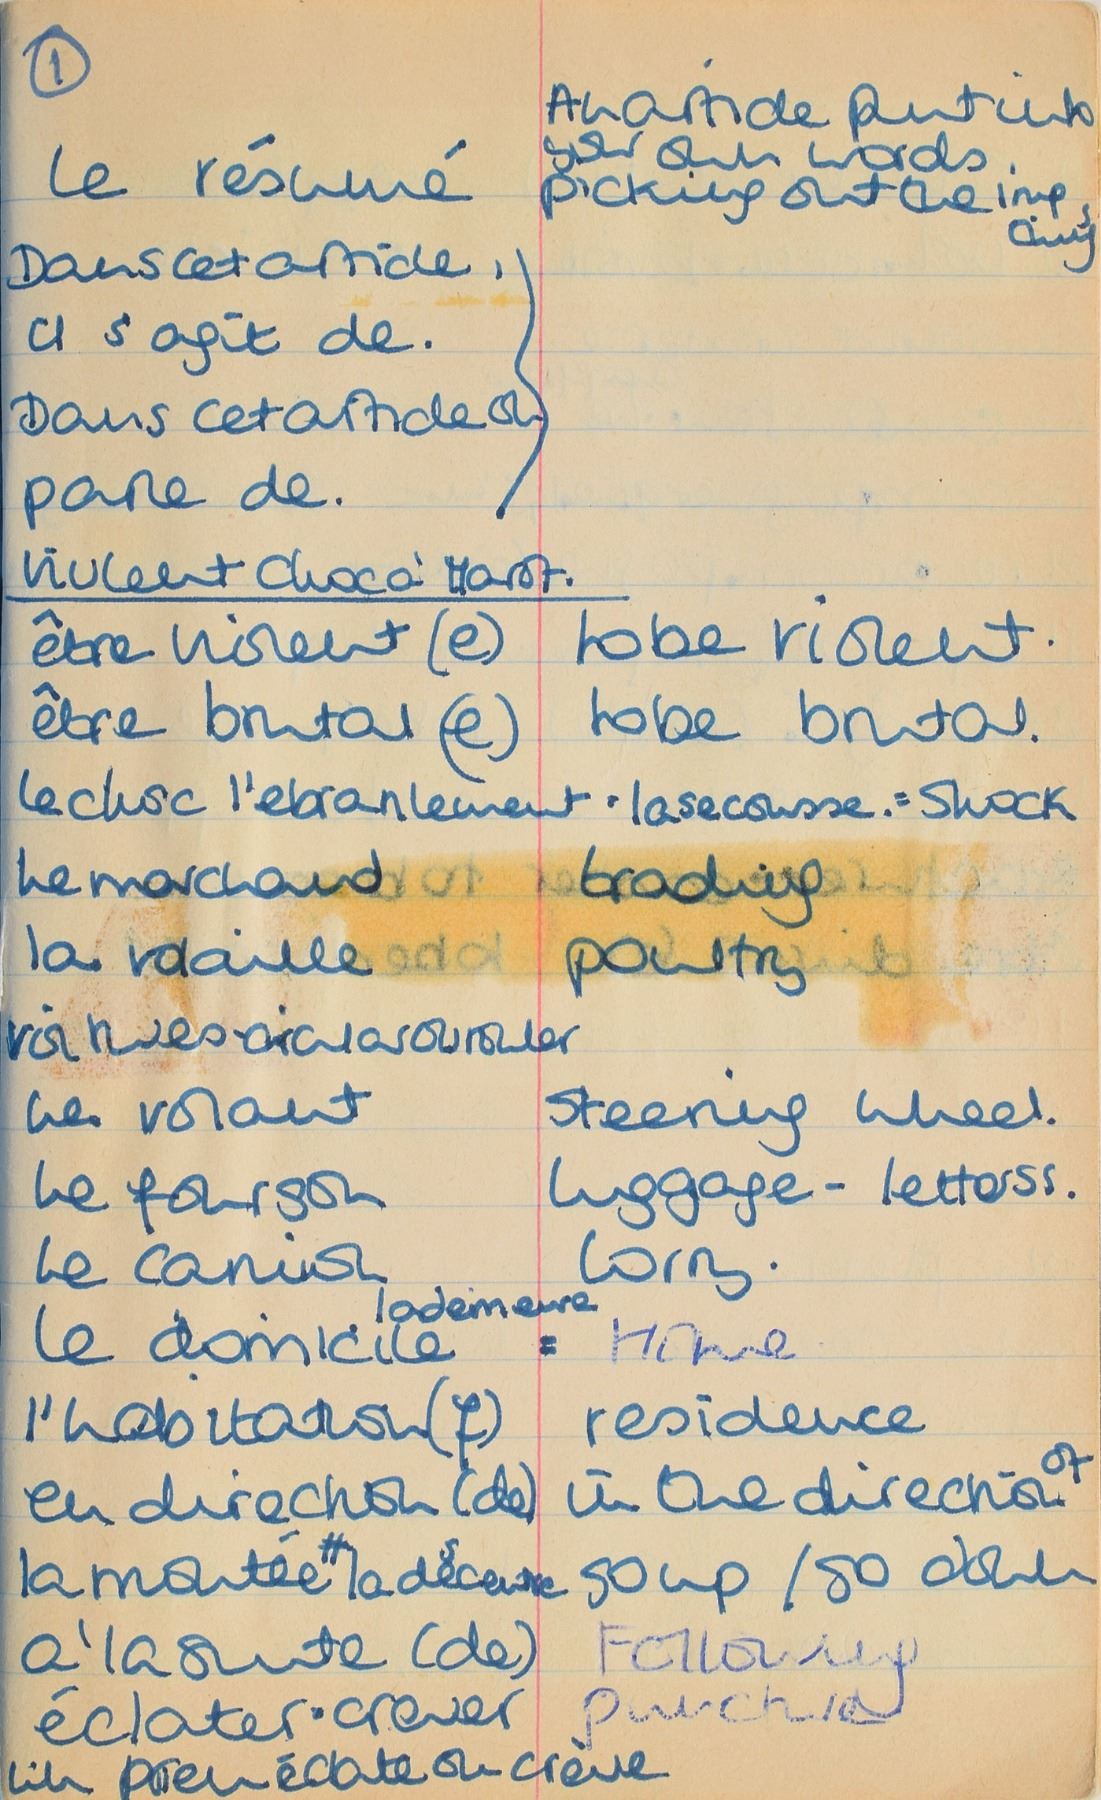 1
An article put into
your own words,
le résumé picking out the imp
things
Dans cet article,
il s'agit de.
Dans cet article on
parle de.
Violent choc à
être violent (e) to be violent.
être brutal (e) to be brutal.
le choc l'ebranlement · la secousse. = Shock
Le marchand trading
la volaille poultry
circular rouler
Le volant steering wheel.
Le fourgon luggage - letterss.
Le camion lorry.
la demeure
Le domicile = Home
l'habitation (f) residence
en direction (de) in the direction of
la montée # la déscente go up / go down
a' la suite (de) Following
éclater · crever
un pneu éclate ou crève